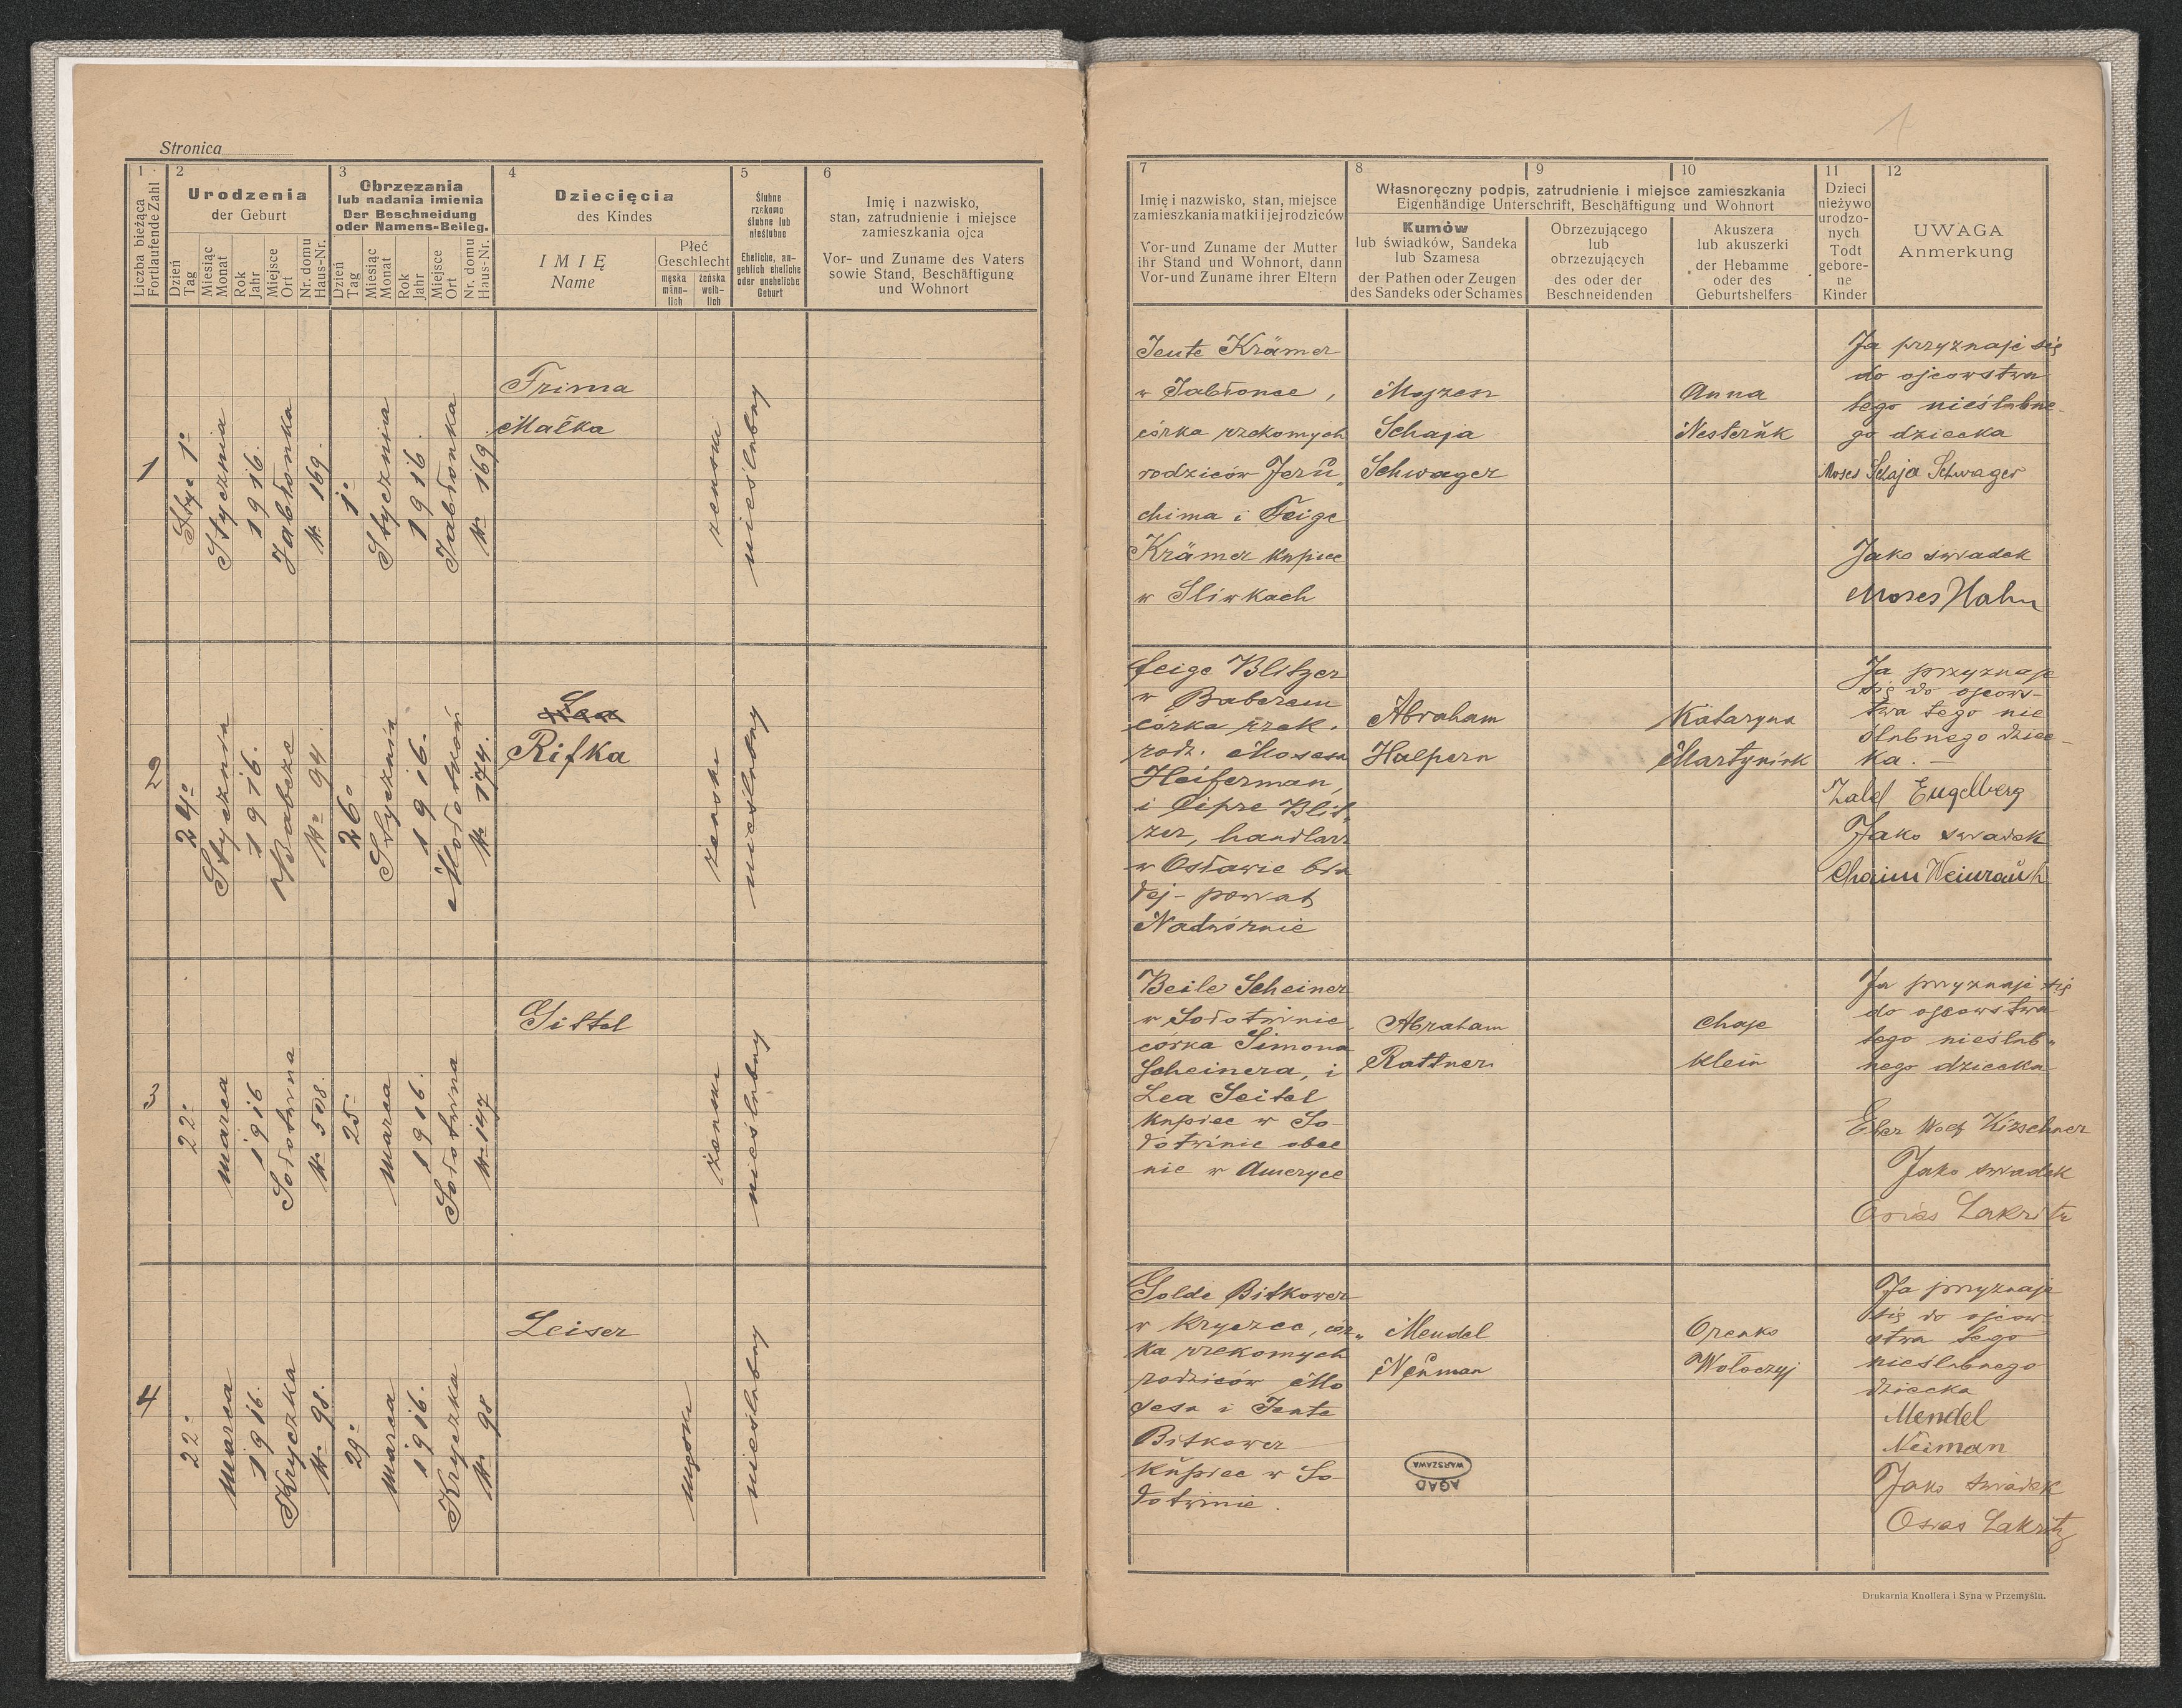 Stronica
1
1
Liczba bieżąca
Fortlaufende Zahl
2
Urodzenia
der Geburt
Dzień
Tag
Miesiąc
Monat
Rok
Jahr
Miejsce
Ort
Nr. domu
Haus-Nr.
3
Obrzezania
lub nadania imienia
Der Beschneidung
oder Namens-Beileg.
Dzień
Tag
Miesiąc
Monat
Rok
Jahr
Miejsce
Ort
Nr. domu
Haus-Nr.
4
Dziecięcia
des Kindes
IMIĘ
Name
Płeć
Geschlecht
męska
männ-
lich
żeńska
weib-
lich
5
Ślubne
rzekomo
ślubne lub
nieślubne
Eheliche, an-
geblich eheliche
oder uneheliche
Geburt
6
Imię i nazwisko,
stan, zatrudnienie i miejsce
zamieszkania ojca
Vor- und Zuname des Vaters
sowie Stand, Beschäftigung
und Wohnort
7
Imię i nazwisko, stan, miejsce
zamieszkania matki i jej rodziców
Vor- und Zuname der Mutter
ihr Stand und Wohnort, dann
Vor- und Zuname ihrer Eltern
8
9
10
Własnoręczny podpis, zatrudnienie i miejsce zamieszkania
Eigenhändige Unterschrift, Beschäftigung und Wohnort
Kumów
lub świadków, Sandeka
lub Szamesa
der Pathen oder Zeugen
des Sandeks oder Schames
Obrzezującego
lub
obrzezujących
des oder der
Beschneidenden
Akuszera
lub akuszerki
der Hebamme
oder des
Geburtshelfers
11
Dzieci
nieżywo
urodzo-
nych
Todt
gebore-
ne
Kinder
12
UWAGA
Anmerkung
1
1º
Stycznia
1916.
Jabłonka
№ 169.
1º
Stycznia
1916.
Jabłonka
№ 169
Frima
Małka
zenska
nieślubny
Jente Krämer
w Jabłonce,
córka rzekomych
rodziców Jeru„
chima i Feige
Krämer kupiec
w Sliwkach
Mojzesz
Schaja
Schwager
Anna
Nesteruk
Ja przyznaje się
do ojcowstwa
tego nieślubne-
go dziecka
Moses Schaja Schwager
Jako swadek
Moses Hahn
2
24º
Stycznia
1916.
Babcze
№ 94.
26º
Stycznia
1916.
Mołotków
№ 174.
Lea
Rifka
żenska
nieślubny
Feige Blitzer
w Babczem
córka rzek.
rodz. Mosesa
Heiferman,
i Cipre Blit„
zer, handlarz
w Osławie bia
łej - powiat
Nadwórnie
Abraham
Halpern
Kataryna
Martyniuk
Ja przyznaje
się do ojcows-
twa tego nie
slubnego dziec-
ka. —
Engelberg
Jako swadek
Chaim Weinrauch
3
22º
marca
1916
Sołotwina
№ 508.
25º
marca
1916.
Sołotwina
№ 147
Gittel
żenska
nieślubny
Beile Scheiner
w Sołotwinie,
corka Simona
Scheinera, i
Lea Seitel
Kupiec w So-
łotwinie obec
nie w Ameryce
Abraham
Rattner
Chaje
Klein
Ja przyznaje się
do ojcowstwa
tego nieślub„
nego dziecka
Kirschner
Jako swadek
Osias Lakritz
4
22º
marca
1916.
Kryczka
№ 98.
29º
marca
1916.
Kryczka
№ 98
Leiser
męska
nieślubny
Golde Bitkower
w Kryczce, cór„
ka rzekomych
rodziców Mo
sesa i Jente
Bitkower
Kupiec w So-
łotwinie.
Mendel
Neuman
Orenko
Wołoczyj
Ja przyznaje
się do ojcow-
stwa tego
nieślubnego
dziecka
Mendel
Neiman
Jako swiadek
Osias Lakritz
AGAD
WARSZAWA
Drukarnia Knollera i Syna w Przemyślu.